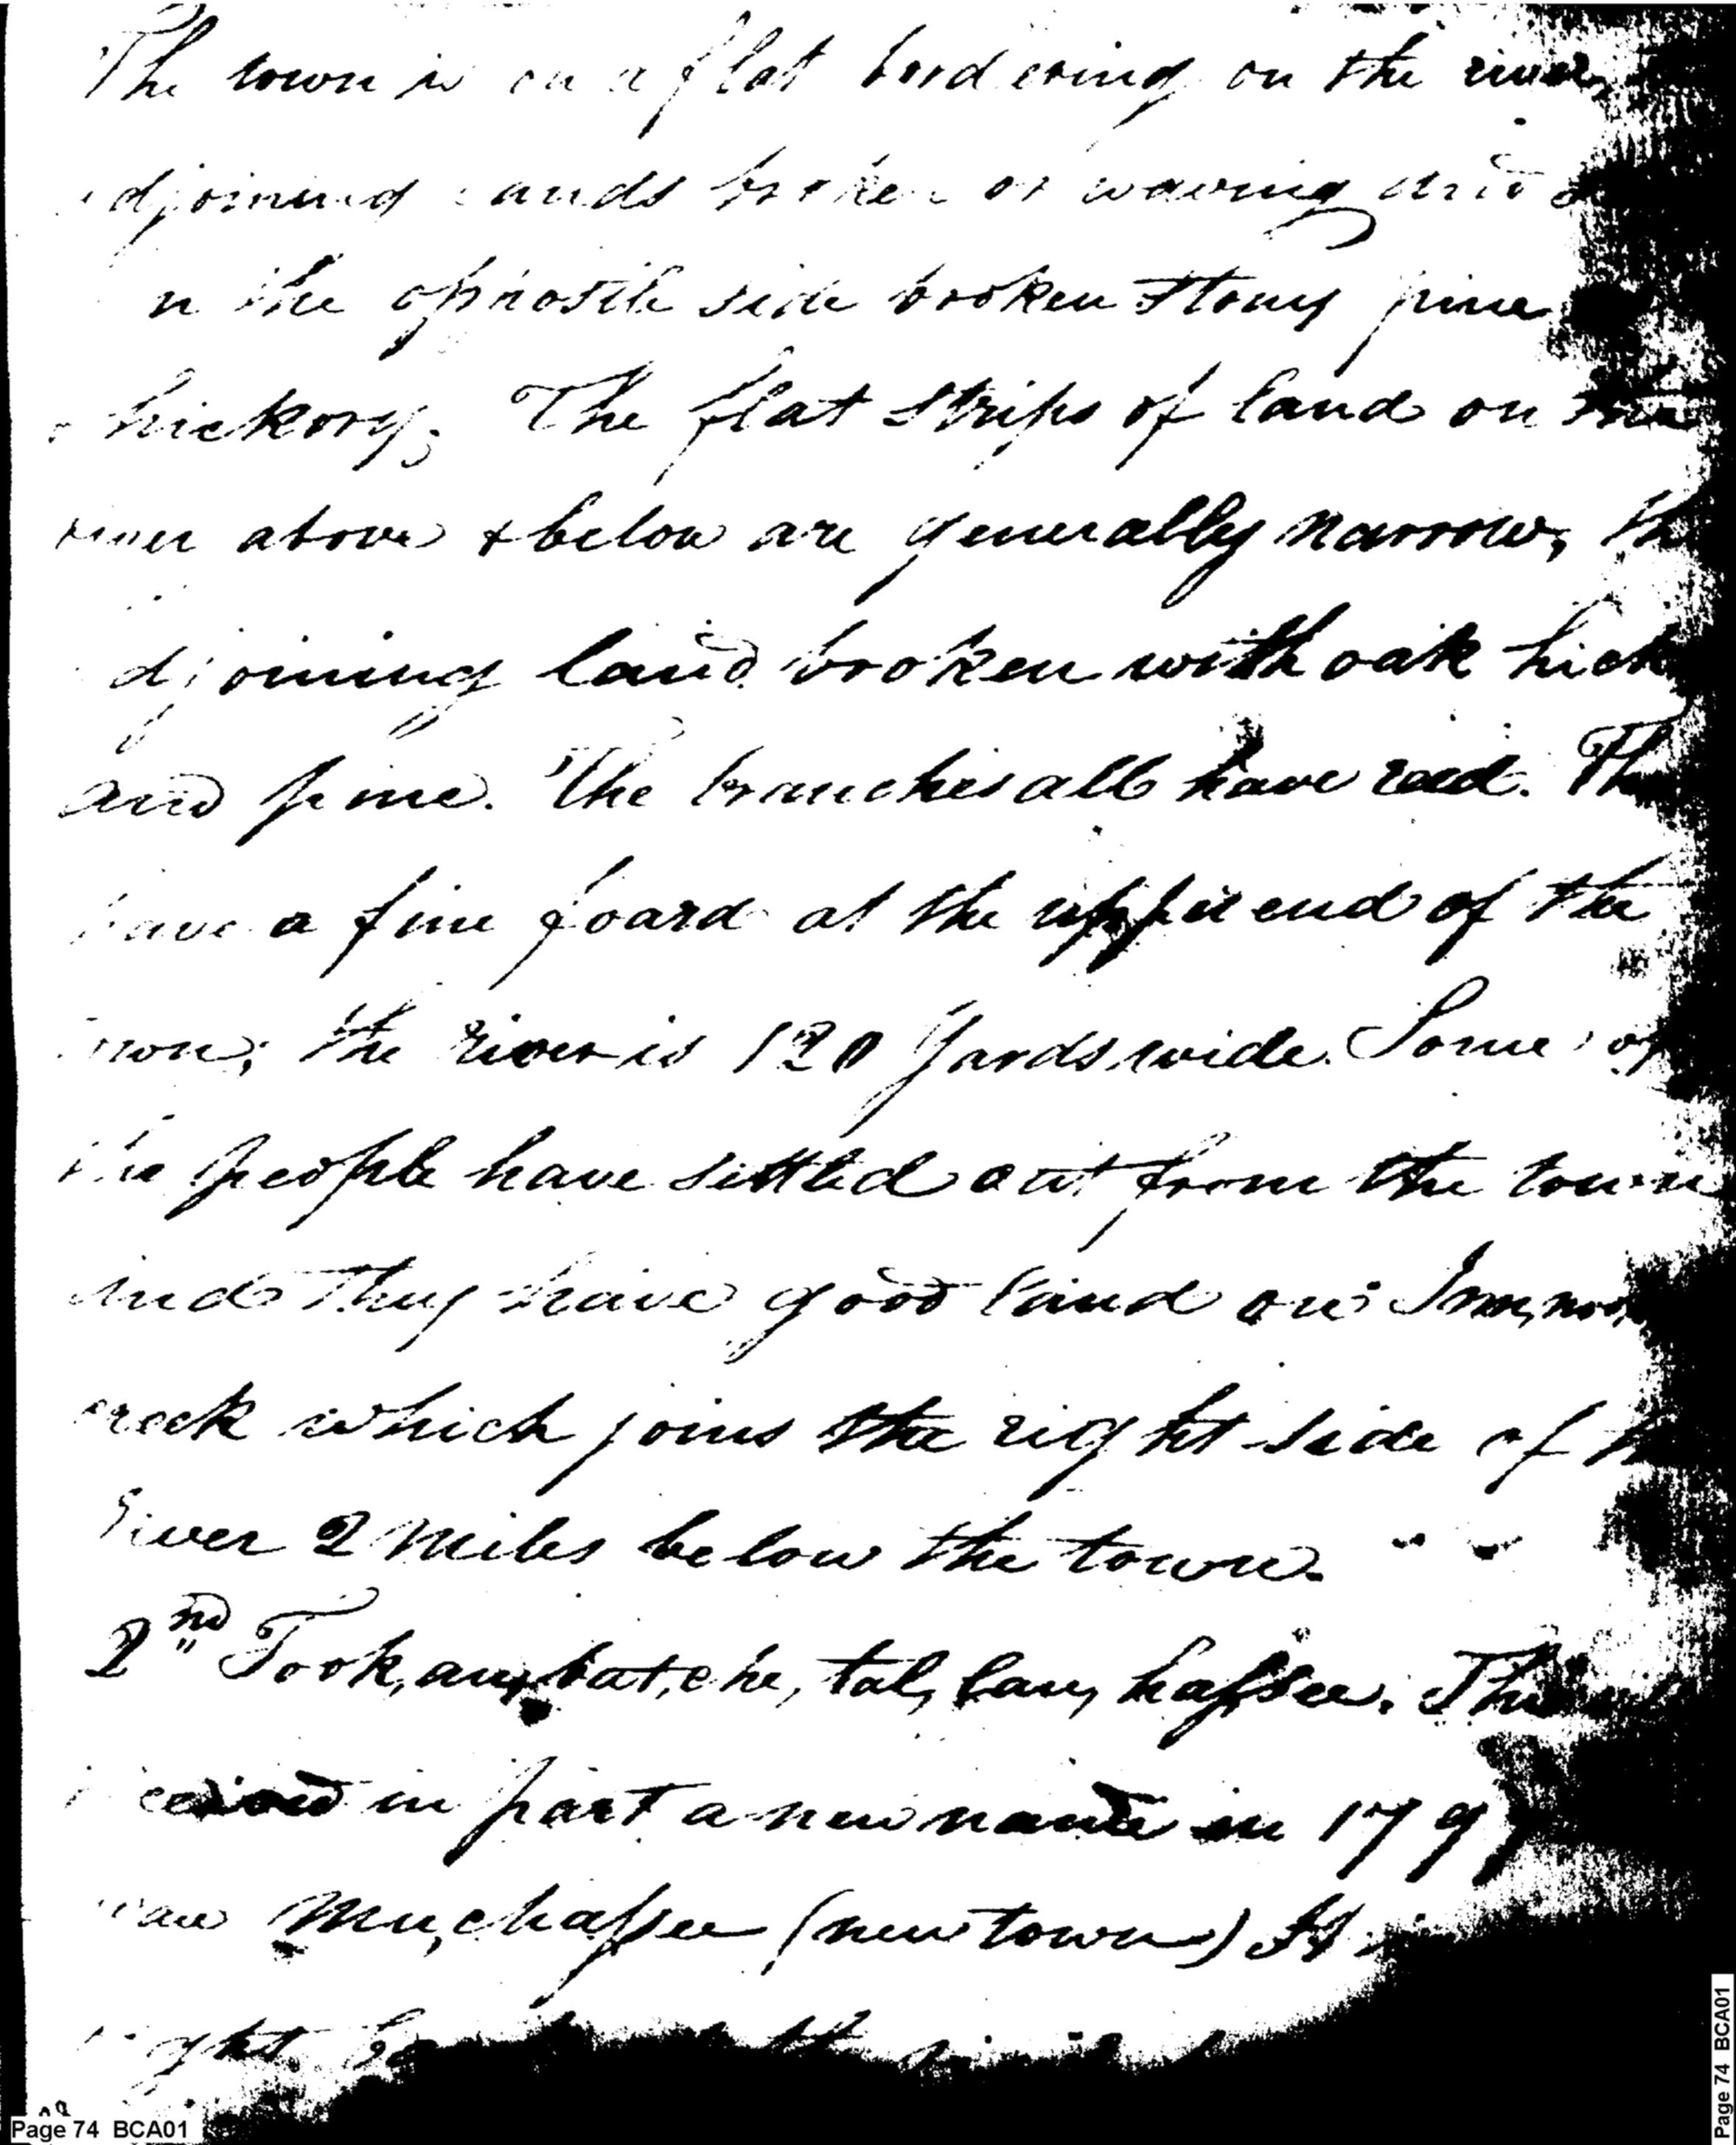 The town is on a flat bordering on the river,
adjoining lands broken or waving and
on the opposite side broken stony pine
& hickory. The flat strips of land on the
river above & below are generally narrow, the
adjoining land broken with oak hick
and pine. The branches all have reed. Th
have a fine foard at the upper end of the
town; the river is 120 yards wide. Some of
the people have settled out from the town
and they have good land on Im,moo,
creek which joins the right side of th
River 2 miles below the town.
2nd Took,au,bat,che, tal,lau,hassee. This
received in part a new name in 1797
Mu,chassee (new town) It
right
Page 74 BCA01
Page 74 BCA01